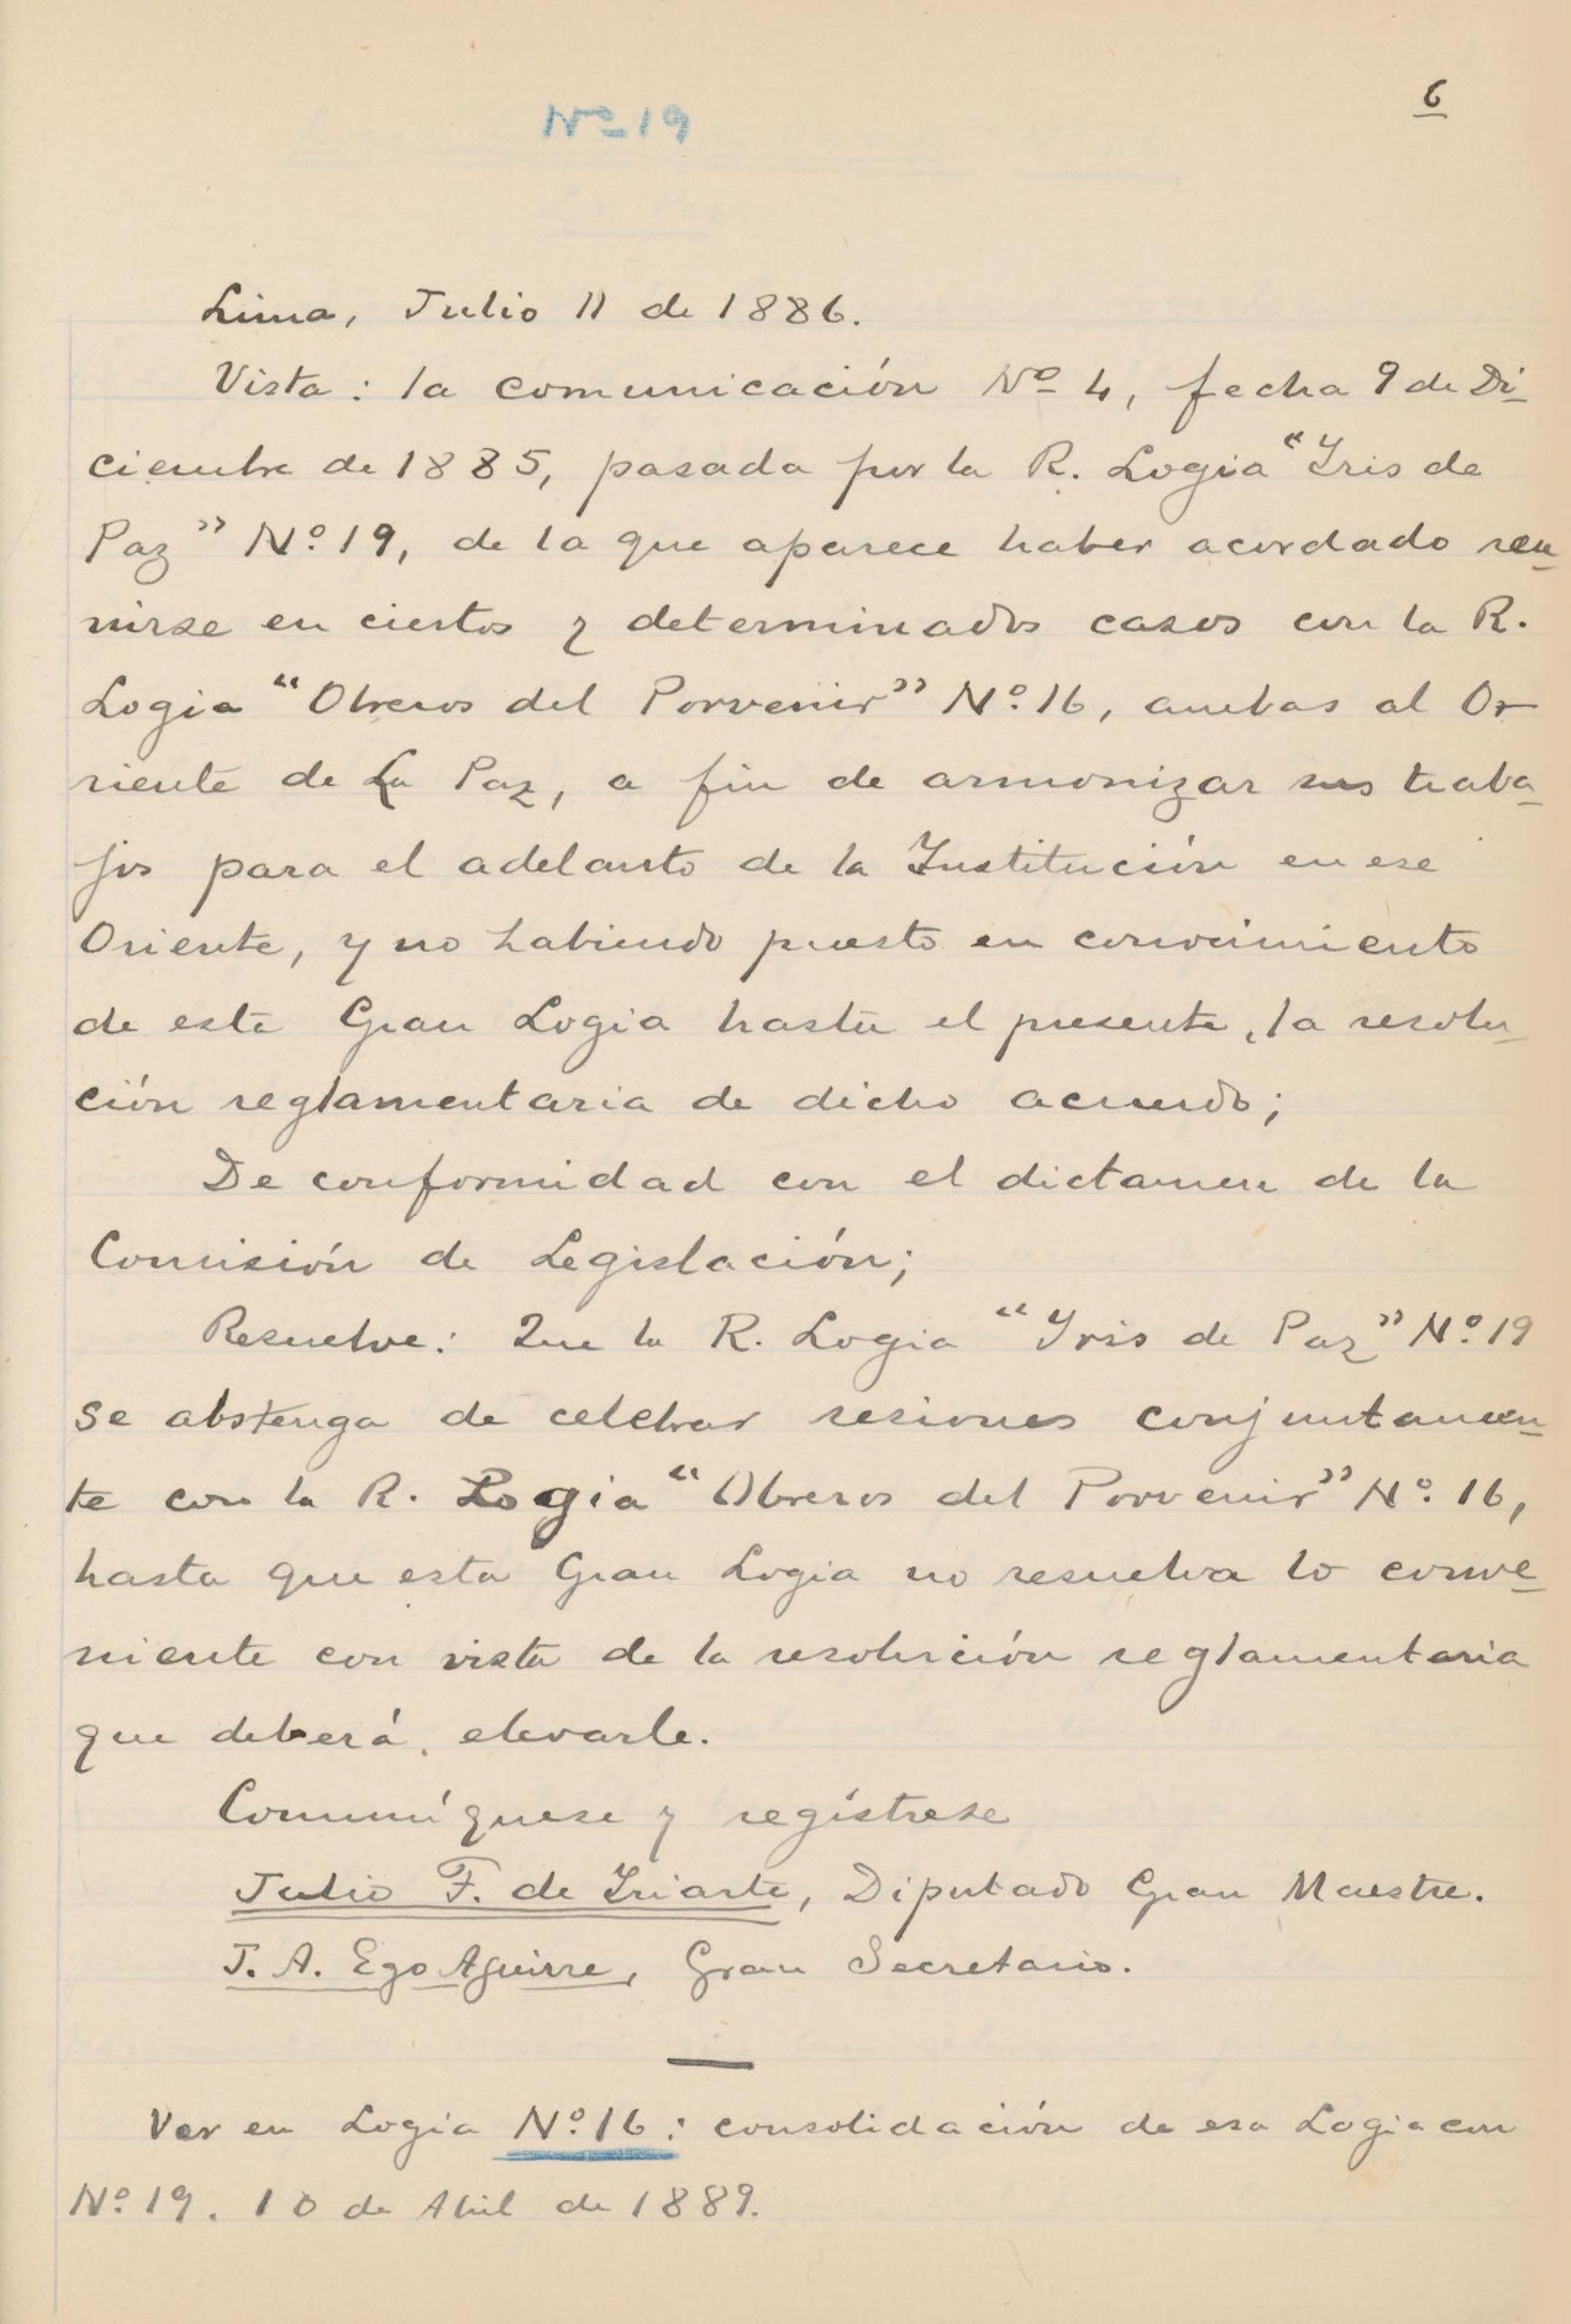 6
Nº 19
Lima, Julio 11 de 1886.
Vista: la comunicación Nº 4, fecha 9 de Di-
ciembre de 1885, pasada por la R. Logia "Yris de
Paz" Nº 19, de la que aparece haber acordado reu-
nirse en ciertos y determinados casos con la R.
Logia "Obreros del Porvenir" Nº 16, ambas al Or-
riente de La Paz, a fin de armonizar sus traba-
jos para el adelanto de la Institución en ese
Oriente, y no habiendo puesto en conocimiento
de esta Gran Logia hasta el presente, la resolu-
ción reglamentaria de dicho acuerdo;
De conformidad con el dictamen de la
Comisión de Legislación;
Resuelve: Que la R. Logia "Yris de Paz" Nº 19
se abstenga de celebrar sesiones conjuntamen-
te con la R. Logia "Obreros del Porvenir" Nº 16,
hasta que esta Gran Logia no resuelva lo conve-
niente con vista de la resolución reglamentaria
que deberá elevarle.
Comuníquese y regístrese
Julio F. de Iriarte, Diputado Gran Maestre.
J. A. Ego Aguirre, Gran Secretario.
Ver en Logia Nº 16: consolidación de esa Logia con
Nº 19. 10 de Abril de 1889.